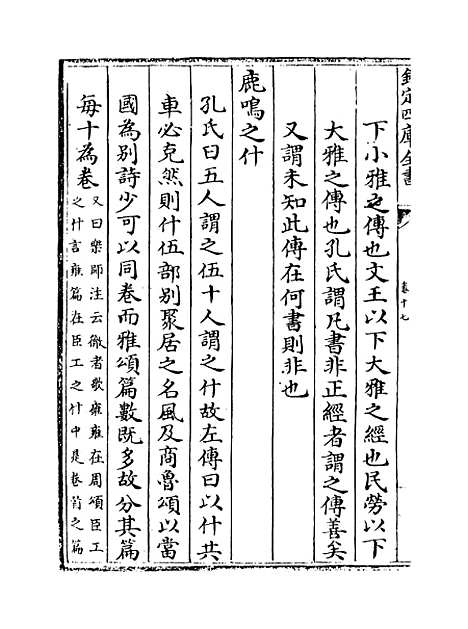 欽定四庫全書
卷十七
下小雅之傳也文王以下大雅之經也民勞以下
大雅之傳也孔氏謂凡書非正經者謂之傳善矣
又謂未知此傳在何書則非也
鹿鳴之什
孔氏曰五人謂之伍十人謂之什故左傳曰以什共
車必克然則什伍部別聚居之名風及商魯頌以當
國為別詩少可以同卷而雅頌篇數既多故分其篇
每十為卷又曰樂師注云徹者歌雍雍在周頌臣工
之什言雍篇在臣工之什中是卷首之篇